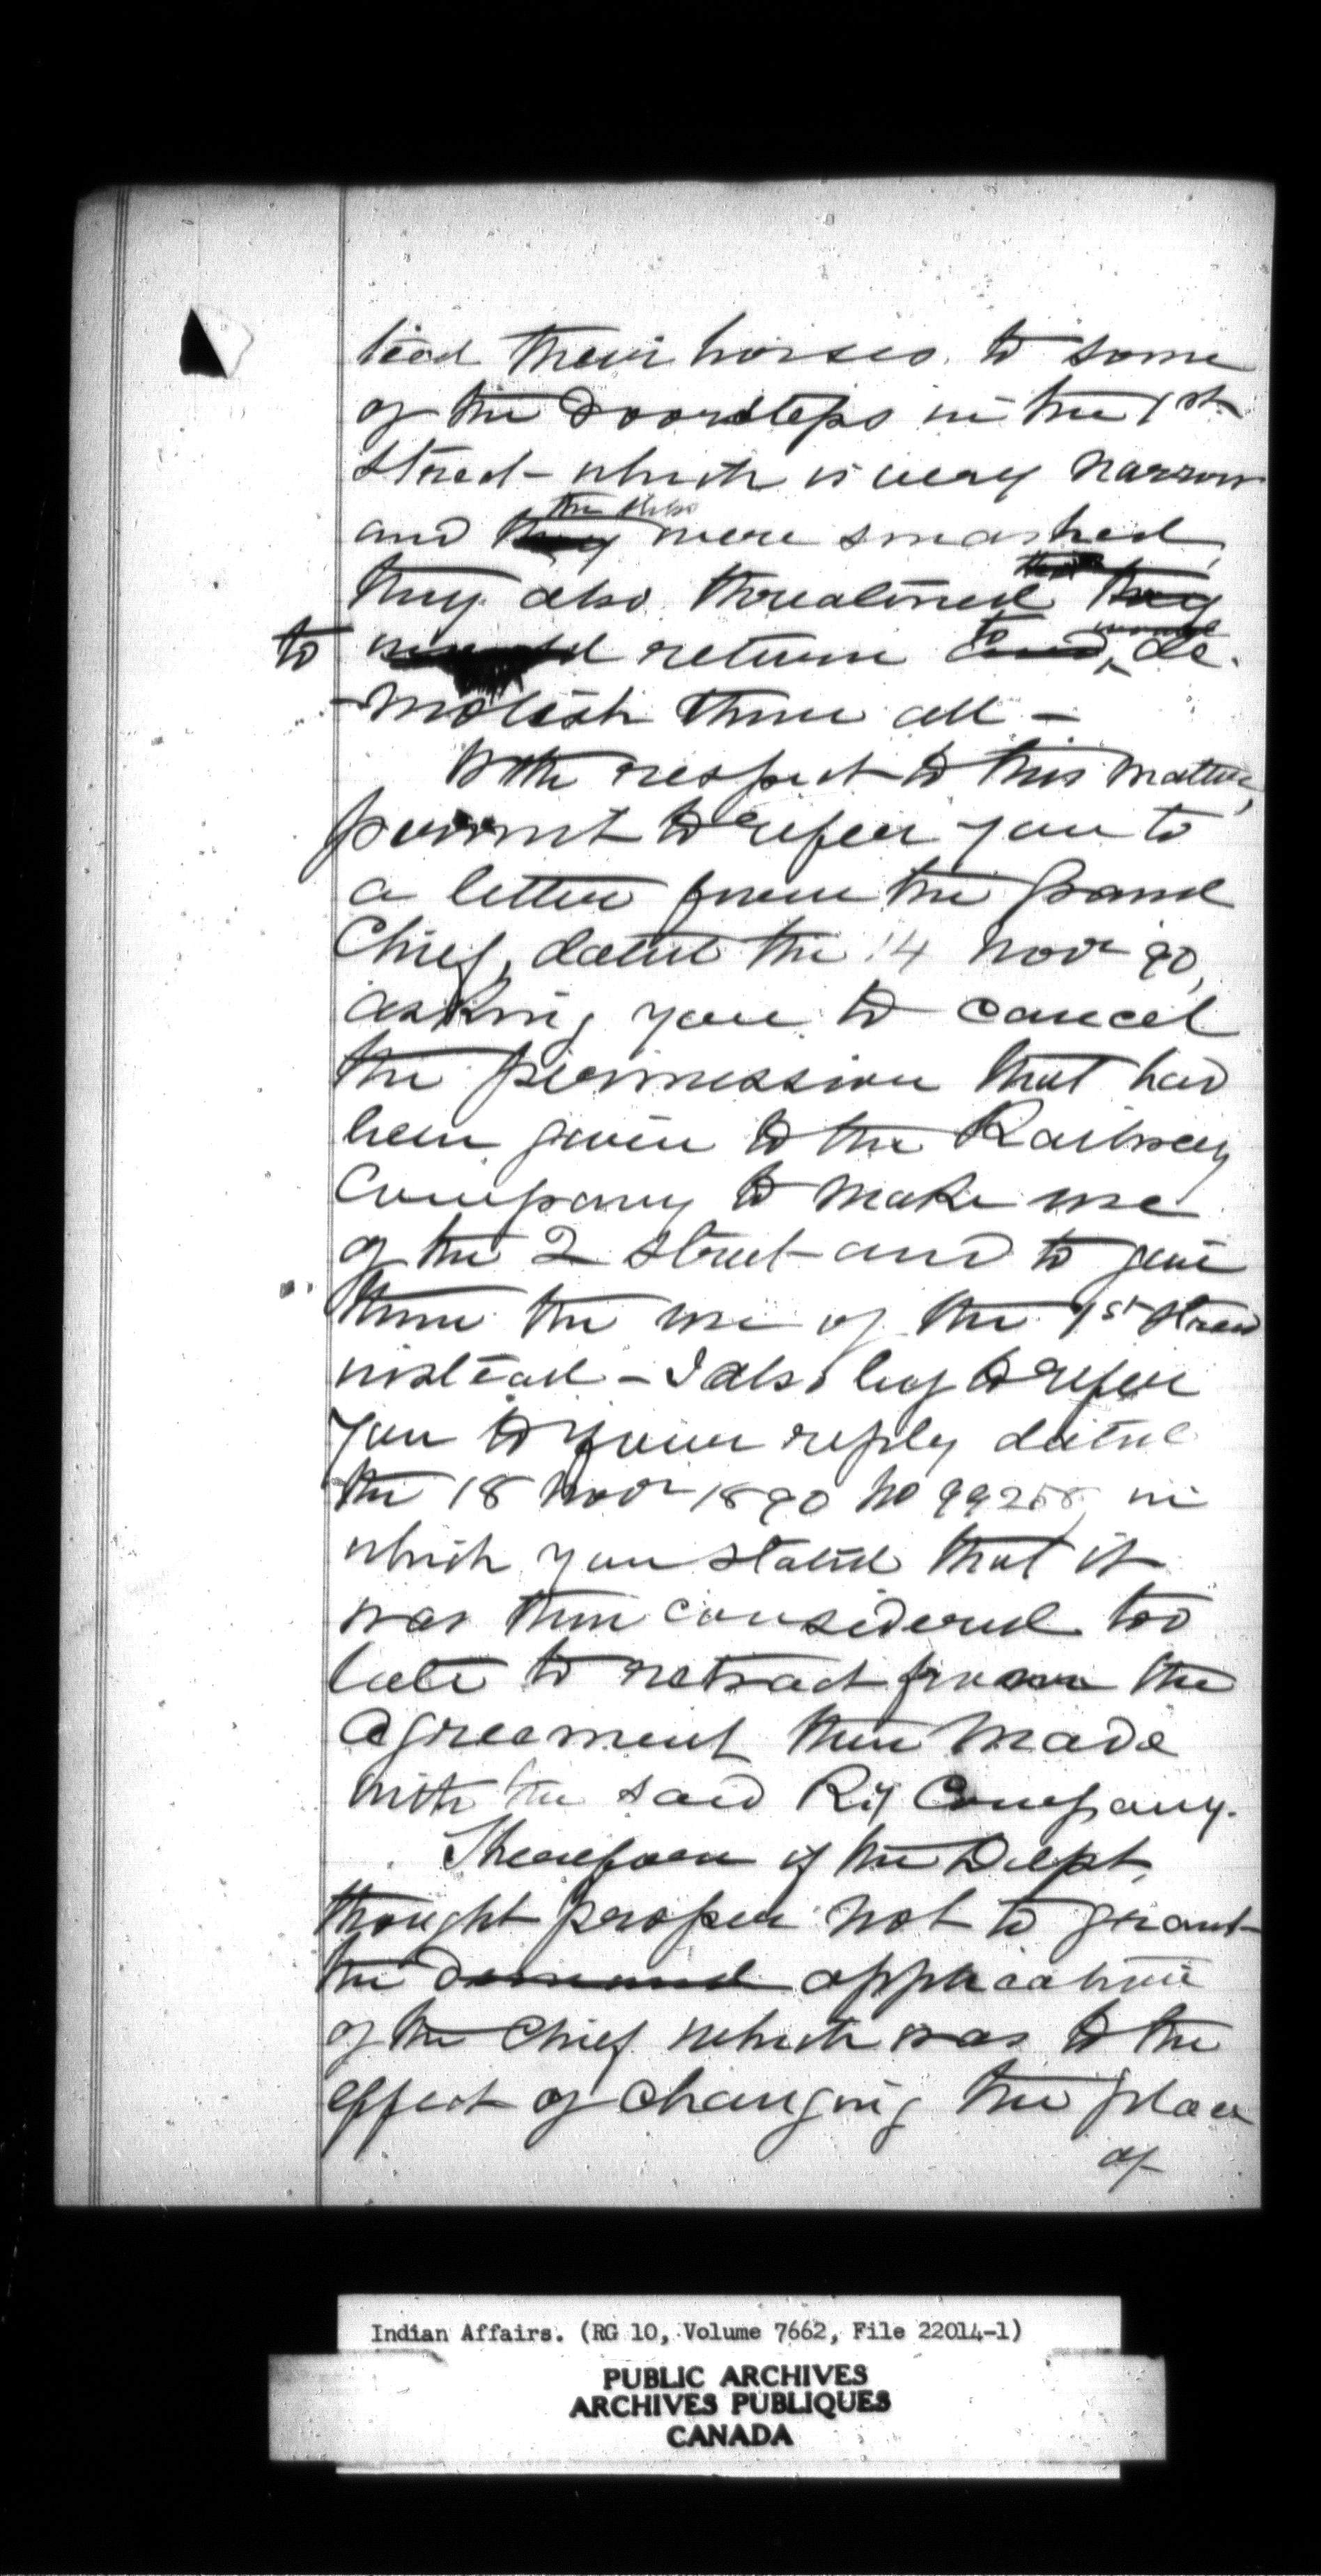 tied their horses to some
of the Doorsteps in the 1st
street which is very narrow
the steps
and they were smashed,
they also threatened that they
to would return and to de-
-molish them all -
With respect to this matter,
permit to refer you to
a letter from the Grand
Chief, dated the 14 Novr 90,
asking you to cancel
the permission that had
been given to the Railway
Company to make use
of the 2 street and to give
them the use of the 1st street
instead - I also beg to refer
you to your reply dated
the 18 Novr 1890 No 99258, in
which you stated that it
was then considered too
late to retract from the
agreement then made
with the said Ry Company.
Therefore if the Dept,
thought proper not to grant
the demand application
of the Chief which was to the
effect of changing the place
of
Indian Affairs. (RG 10, Volume 7662, File 22014-1)
PUBLIC ARCHIVES
ARCHIVES PUBLIQUES
CANADA